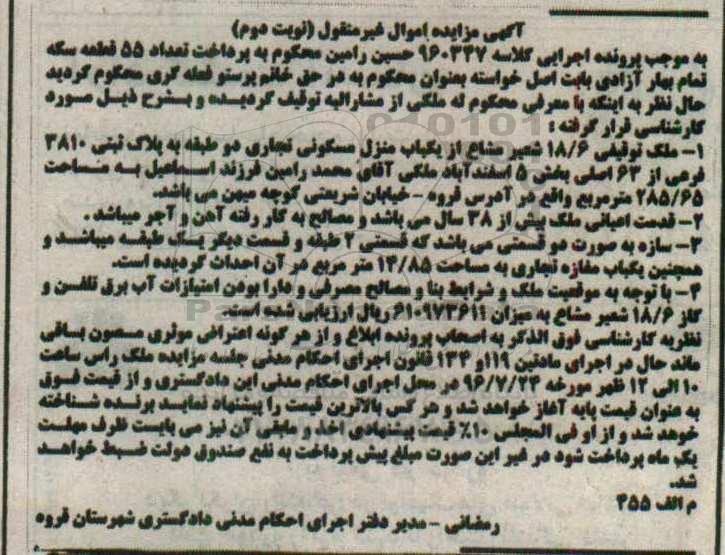 آگهی مزایده اموال غیرمنقول (نوبت دوم)
به موجب پرونده اجرایی کلاسه ۹۶۰۳۴۷ حسین رامین محکوم به پرداخت تعداد ۵۵ قطعه سکه
تمام بهار آزادی بابت اصل خواسته بعنوان محکوم به در حق خانم پرستو قطه گری محکوم گردید
حال نظر به اینکه با معرفی محکوم له ملکی از مشارالیه توقیف گردیده و بشرح ذیل مورد
کارشناسی قرار گرفته :
۱- ملک توقیفی ۱۸/۶ شعیر مشاع از یکباب منزل مسکونی تجاری دو طبقه به پلاک ثبتی ۳۸۱۰
فرعی از ۶۳ اصلی بخش ۵ اسفندآباد ملکی آقای محمد رامین فرزند اسماعیل به مساحت
۲۸۵/۶۵ مترمربع واقع در آدرس قروه - خیابان شریعتی کوچه میهن می باشد.
۲- قدمت اعیانی ملک بیش از ۳۸ سال می باشد و مصالح به کار رفته آهن و آجر میباشد .
۳- سازه به صورت دو قسمتی می باشد که قسمتی ۲ طبقه و قسمت دیگر یک طبقه میباشد و
همچنین یکباب مغازه تجاری به مساحت ۱۴/۸۵ متر مربع در آن احداث گردیده است.
۴- با توجه به موقعیت ملک و شرایط بنا و مصالح مصرفی و دارا بودن امتیازات آب برق تلفن و
گاز ۱۸/۶ شعیر مشاع به میزان ۶۱۰۹۷۳۶۱۱ ریال ارزیابی شده است.
نظریه کارشناسی فوق الذکر به اصحاب پرونده ابلاغ و از هر گونه اعتراض موثری مصون باقی
ماند حال در اجرای مادتین ۱۱۹و ۱۳۴ قانون اجرای احکام مدنی جلسه مزایده ملک راس ساعت
۱۰ الی ۱۲ ظهر مورخه ۹۶/۷/۲۴ در محل اجرای احکام مدنی این دادگستری و از قیمت فوق
به عنوان قیمت پایه آغاز خواهد شد و هر کس بالاترین قیمت را پیشنهاد نماید برنده شناخته
خوهد شد و از او فی المجلس ۱۰٪ قیمت پیشنهادی اخذ و مابقی آن نیز می بایست ظرف مهلت
یک ماه پرداخت شود در غیر این صورت مبلغ پیش پرداخت به نفع صندوق دولت ضبط خواهد
شد.
م الف ۴۵۵
رمضانی - مدیر دفتر اجرای احکام مدنی دادگستری شهرستان قروه